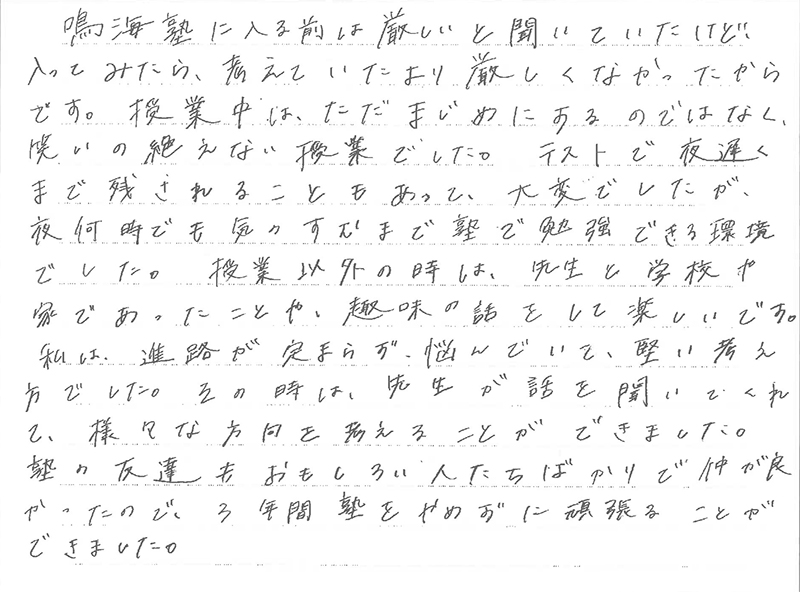 鳴海塾に入る前は厳しいと聞いていたけど、
入ってみたら、考えていたより厳しくなかったから
です。授業中は、ただまじめにするのではなく、
笑いの絶えない授業でした。テストで夜遅く
まで残されることもあって、大変でしたが、
夜何時でも気のすむまで塾で勉強できる環境
でした。授業以外の時は、先生と学校や
家であったことや、趣味の話をして楽しいです。
私は、進路が定まらず、悩んでいて、堅い考え
方でした。その時は、先生が話を聞いてくれ
て、様々な方向を考えることができました。
塾の友達もおもしろい人たちばかりで仲が良
かったので、3年間塾をやめずに頑張ることが
できました。